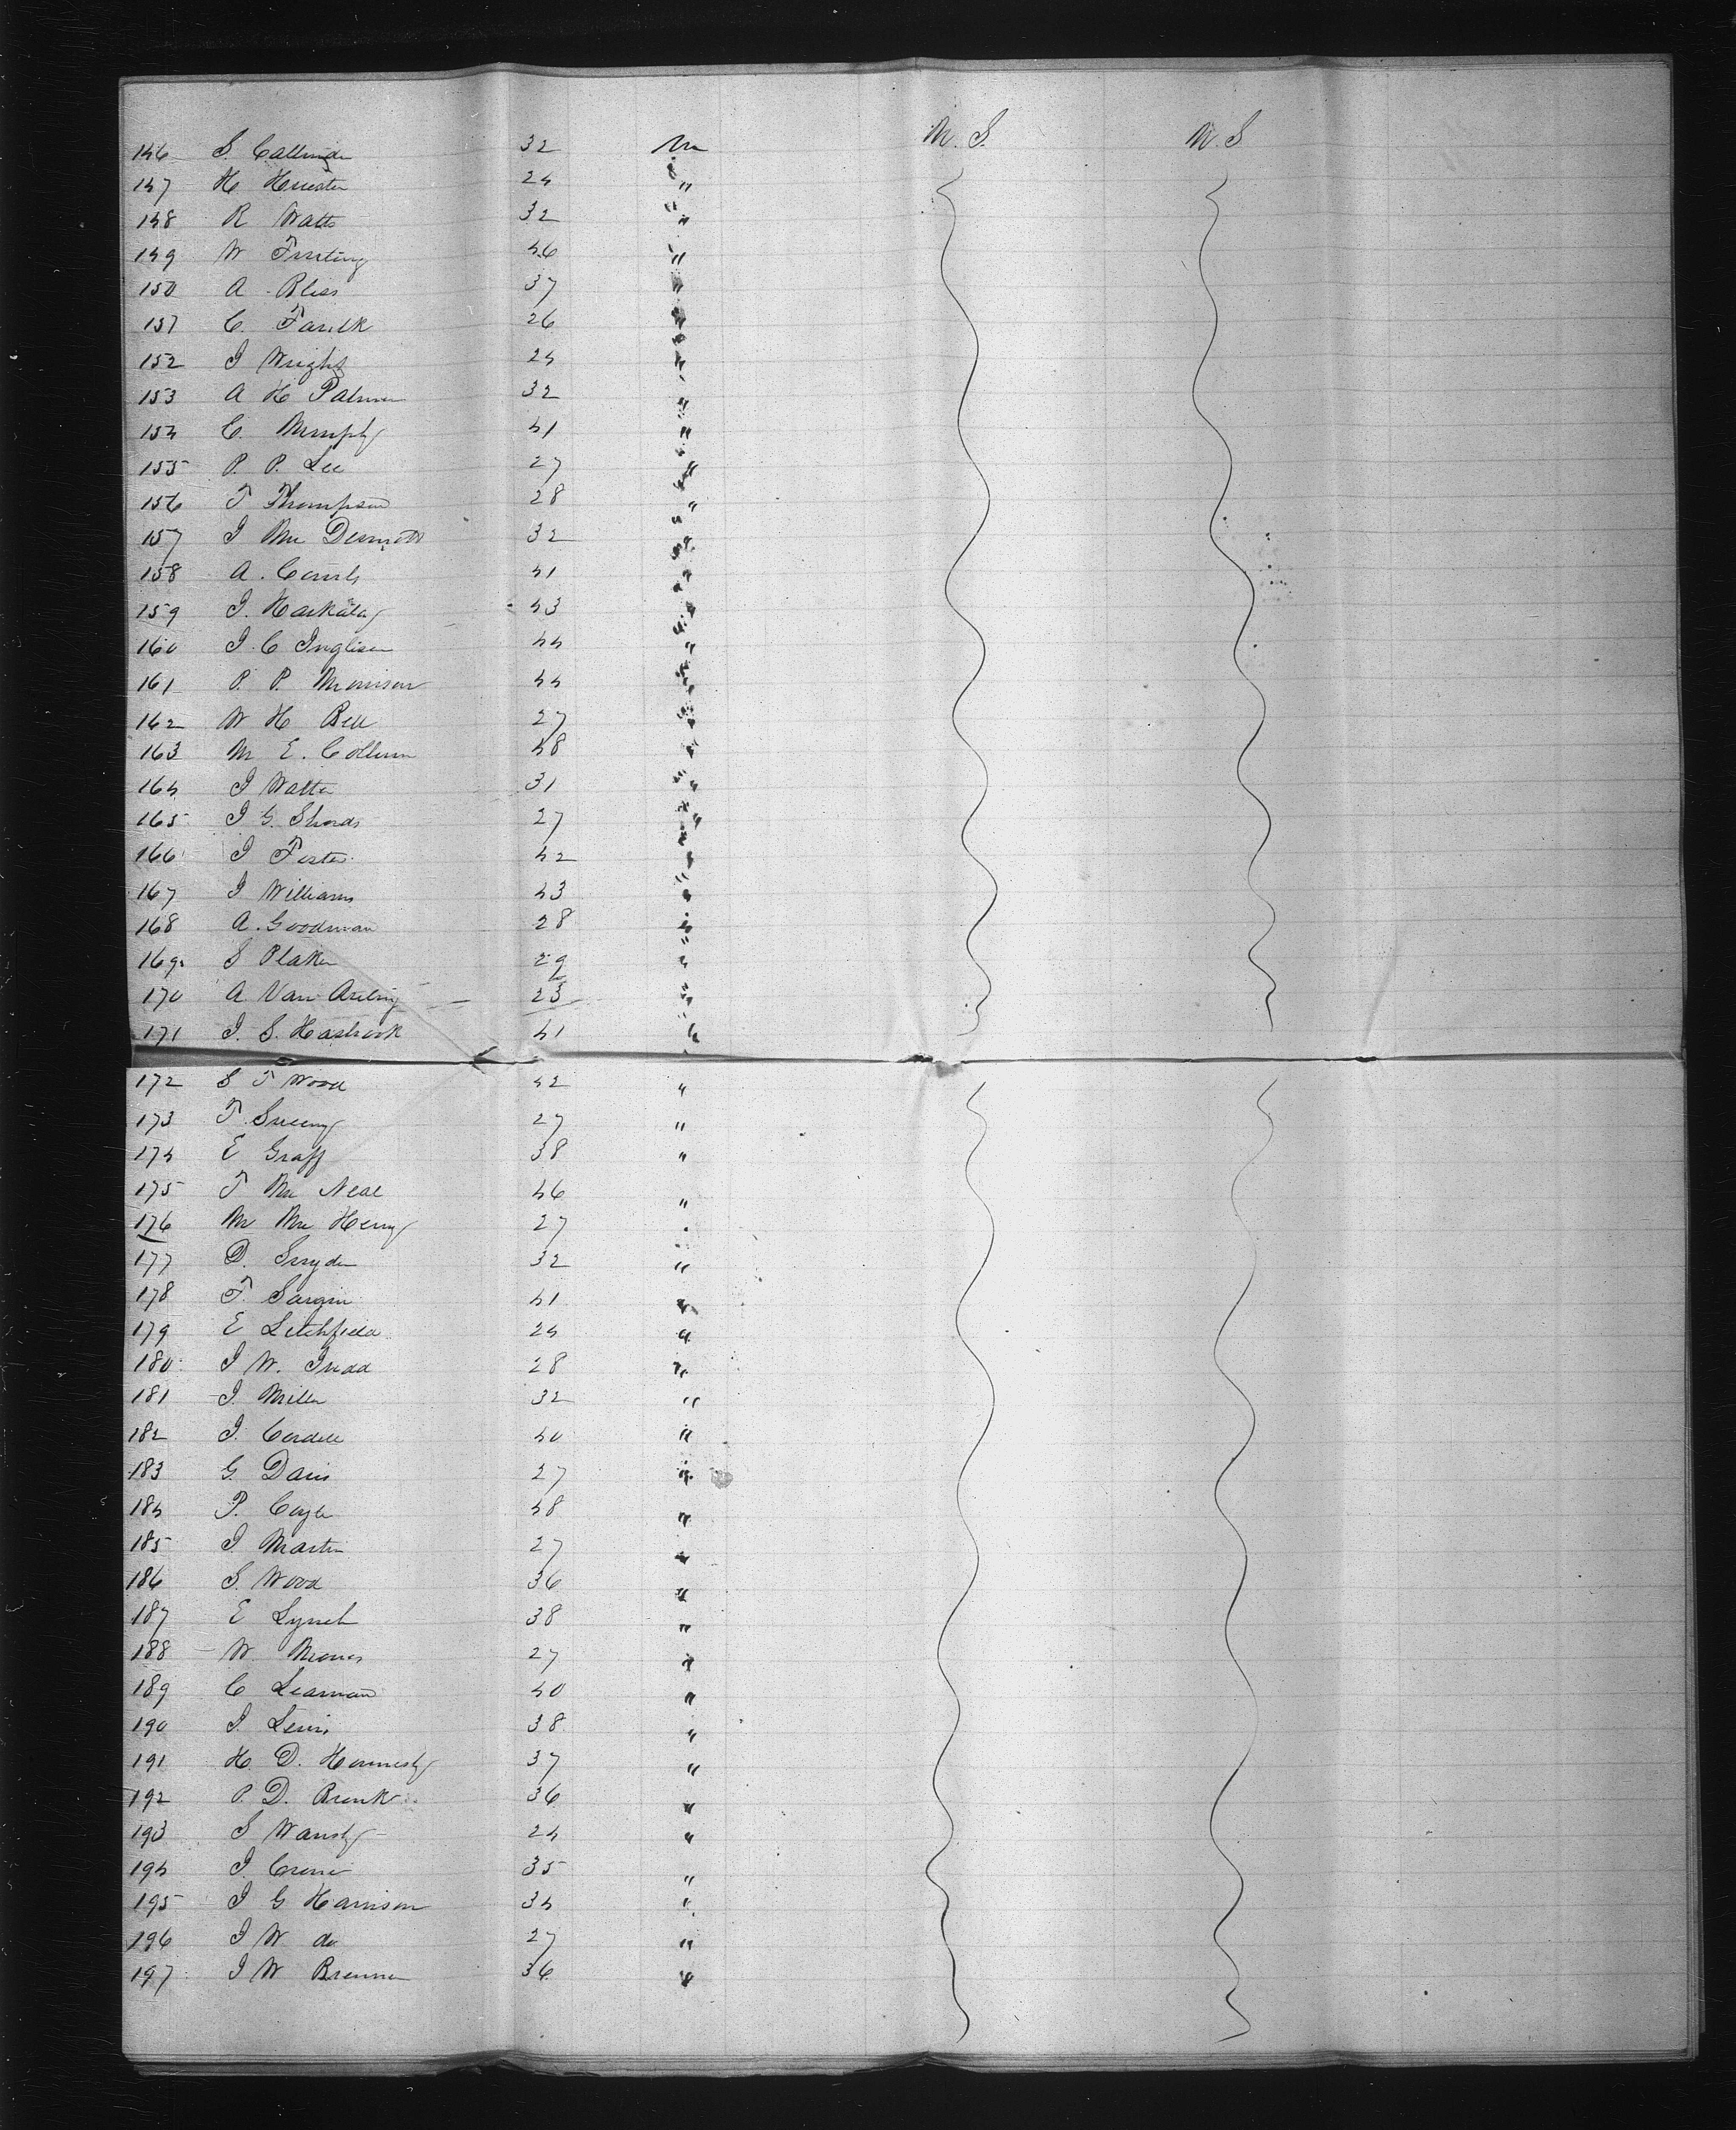 146 S. Callender 32 M U.S. U.S.
147 H Hunter 24 "
148 R Watts 32 "
149 W 46 "
150 A. Bliss 37 "
151 C. Faulk 26 "
152 J Wright 24 "
153 A H Palmer 32 "
154 C. Murphy 41 "
155 P. P. Lee 27 "
156 T Thompson 28 "
157 J Mc Dermott 32 "
158 A. 41 "
159 J. 43 "
160 J. C 44 "
161 P. P. Morrison 44 "
162 W H Bell 27 "
163 M E. Collins 48 "
164 J Watter 31 "
165 J G. Shords 27 "
166 J Foster 42 "
167 J Williams 43 "
168 A. Goodman 28 "
169 S Plaker 29 "
170 A Van 23 "
171 J. S. Hasbrook 41 "
172 S T Wood 42 "
173 T. Sweeny 27 "
174 E Graff 38 "
175 T Mc Neal 46 "
176 M Mc Henry 27 "
177 D. Snyder 32 "
178 T. 41 "
179 E Litchfield 24 "
180 J W. Judd 28 "
181 J. Miller 32 "
182 J. Cordell 40 "
183 G. Davis 27 "
184 P. Coyle 48 "
185 J. Martin 27 "
186 S. Wood 36 "
187 E Lynch 38 "
188 W. 27 "
189 C Leaman 40 "
190 J. Lewis 38 "
191 H. D. Hennesly 37 "
192 P. D. Bronk 36 "
193 S 24 "
194 J. 35 "
195 J G Harrison 34 "
196 J W do 27 "
197 J W Brenner 36 "